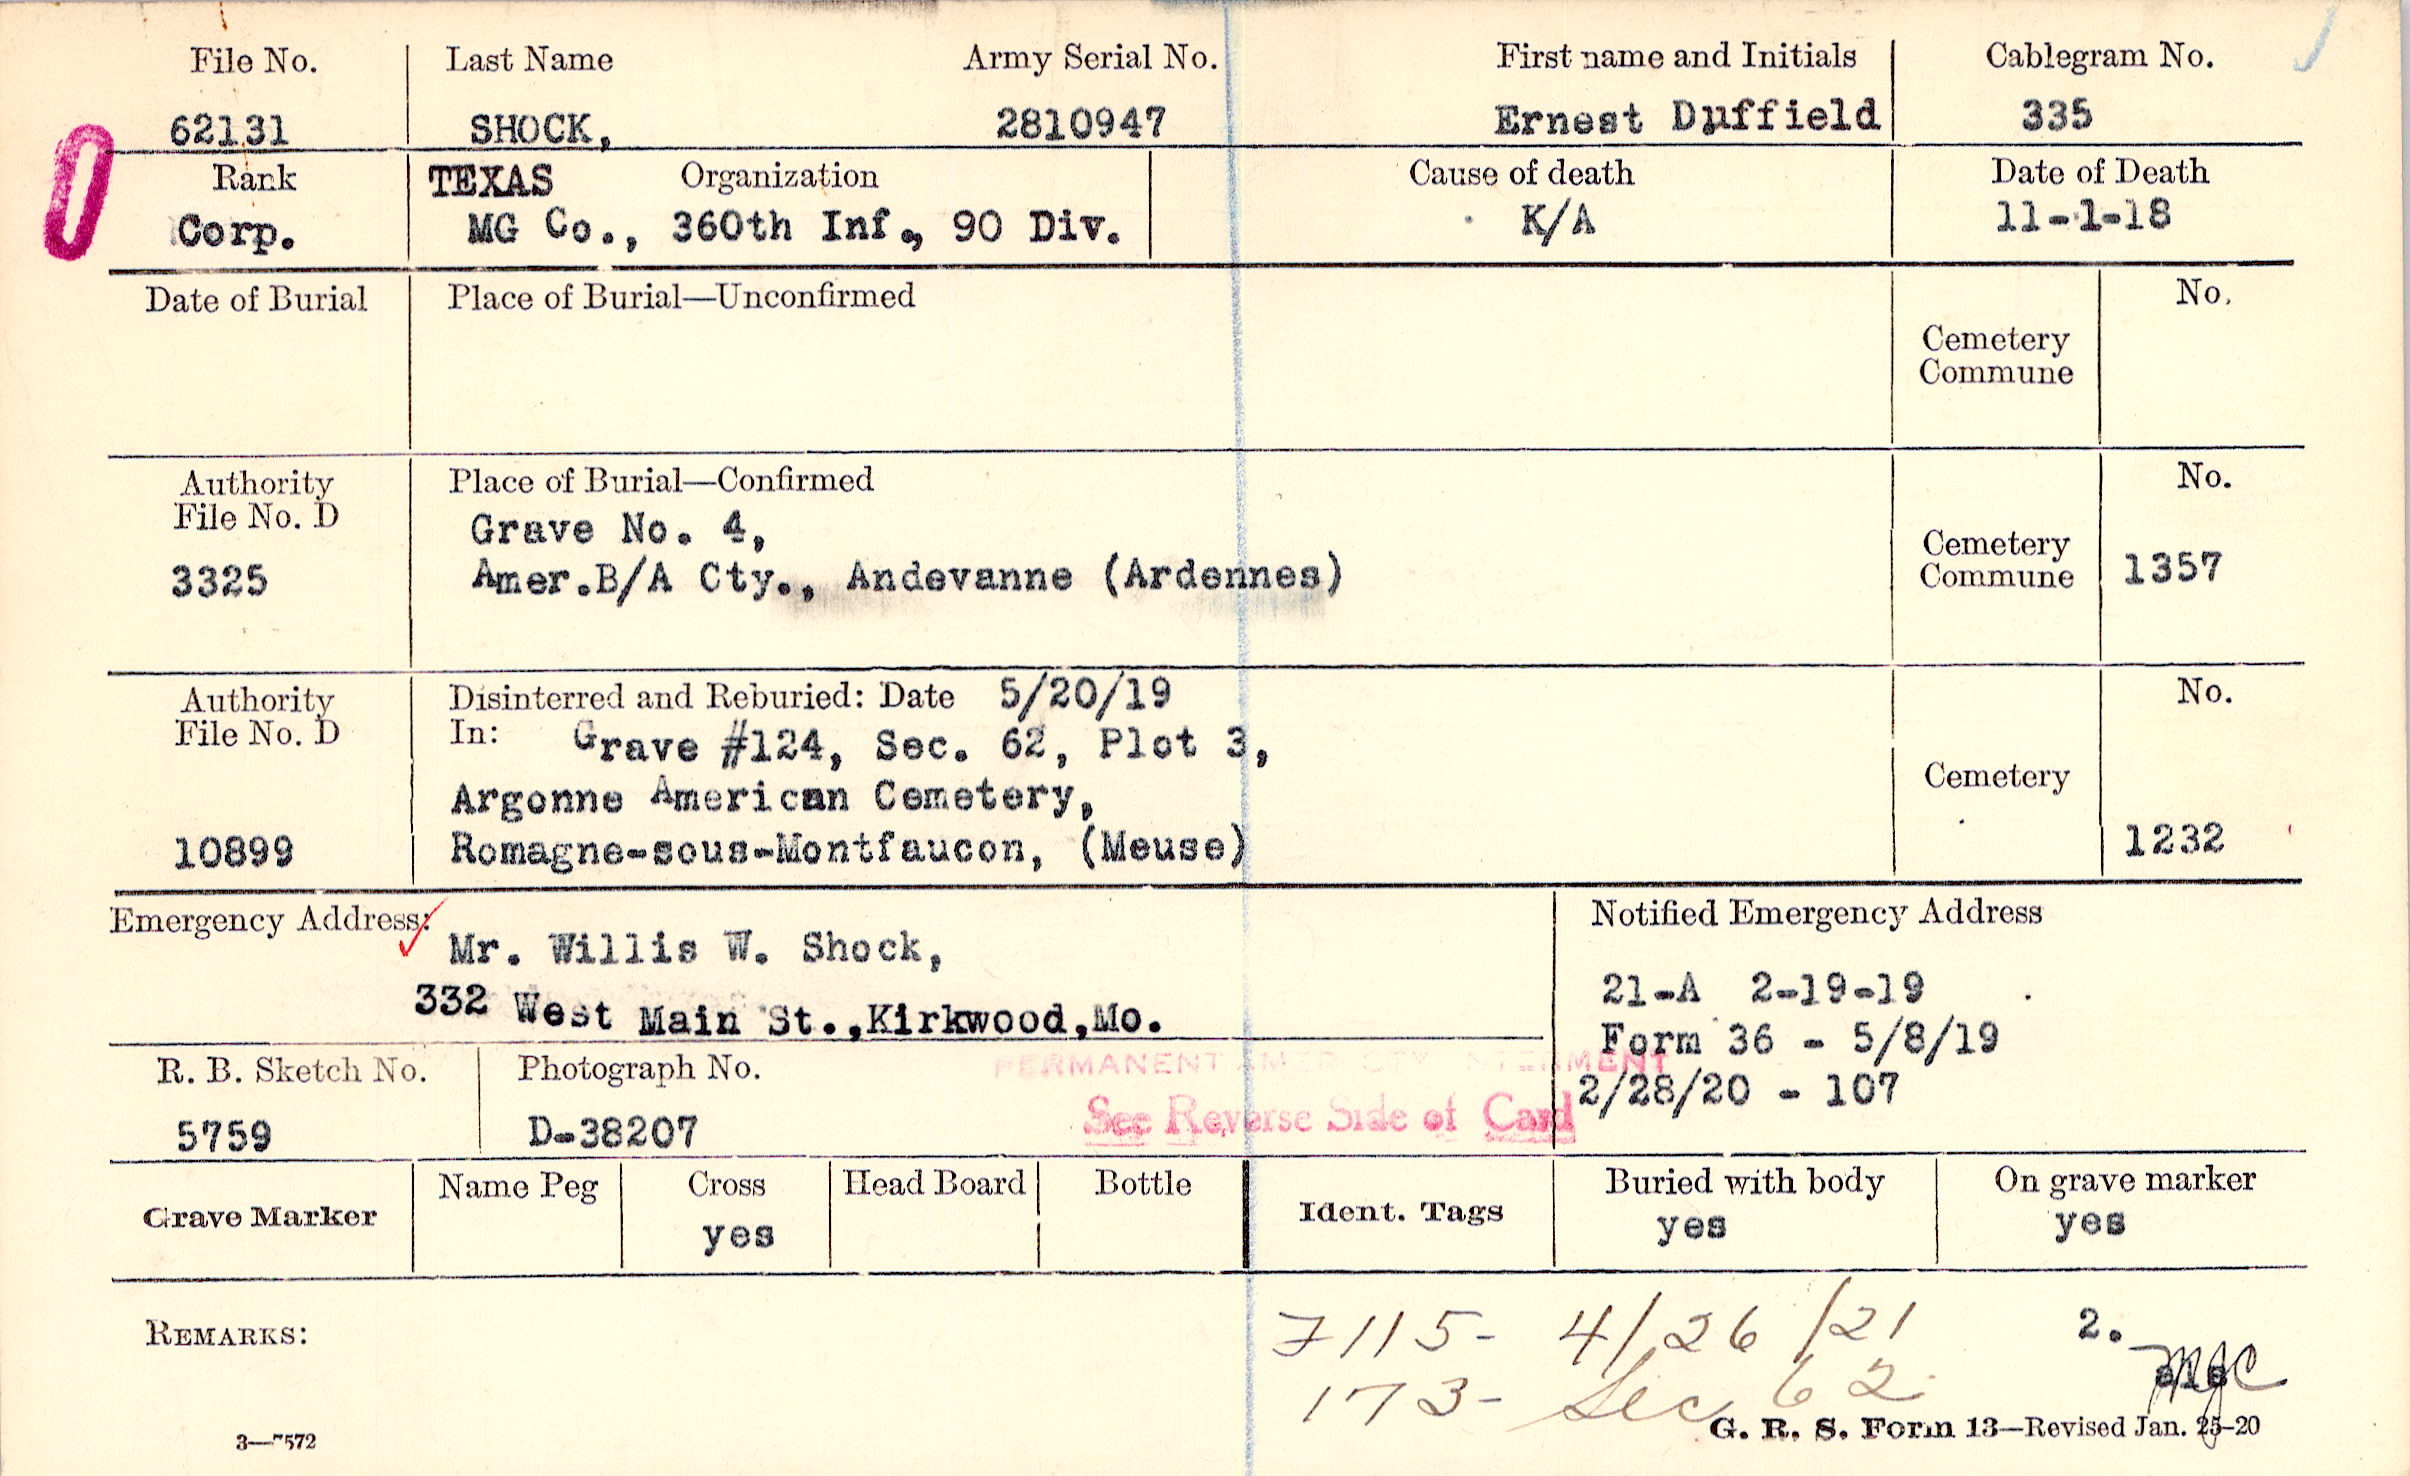 File No. Last Name Army Serial No. First name and Initials Cablegram No.
62131 SHOCK, 2810947 Ernest Duffield 335
Rank TEXAS Organization Cause of death Date of Death
Corp. MG Co., 360th Inf., 90 Div. K/A 11-1-18
Date of Burial Place of Burial—Unconfirmed No.
Cemetery
Commune
Authority Place of Burial—Confirmed No.
File No. D
Grave No. 4,
Cemetery
3325 Amer.B/A Cty., Andevanne (Ardennes) Commune 1357
Authority Disinterred and Reburied: Date 5/20/19 No.
File No. D In: Grave #124, Sec. 62, Plot 3,
Argonne American Cemetery, Cemetery
10899 Romagne-sous-Montfaucon, (Meuse) 1232
Emergency Address: Notified Emergency Address
Mr. Willis W. Shock,
21-A 2-19-19
332 West Main St.,Kirkwood,Mo.
Form 36 - 5/8/19
R. B. Sketch No. Photograph No. PERMANENT CTY INTERMENT
2/28/20 - 107
5759 D-38207 See Reverse Side of Card
Grave Marker Name Peg Cross Head Board Bottle Ident. Tags Buried with body On grave marker
yes yes yes
REMARKS: 7115- 4/26/21 2.
173- Sec 62
3—7572 G. R. S. Form 13—Revised Jan. 25-20